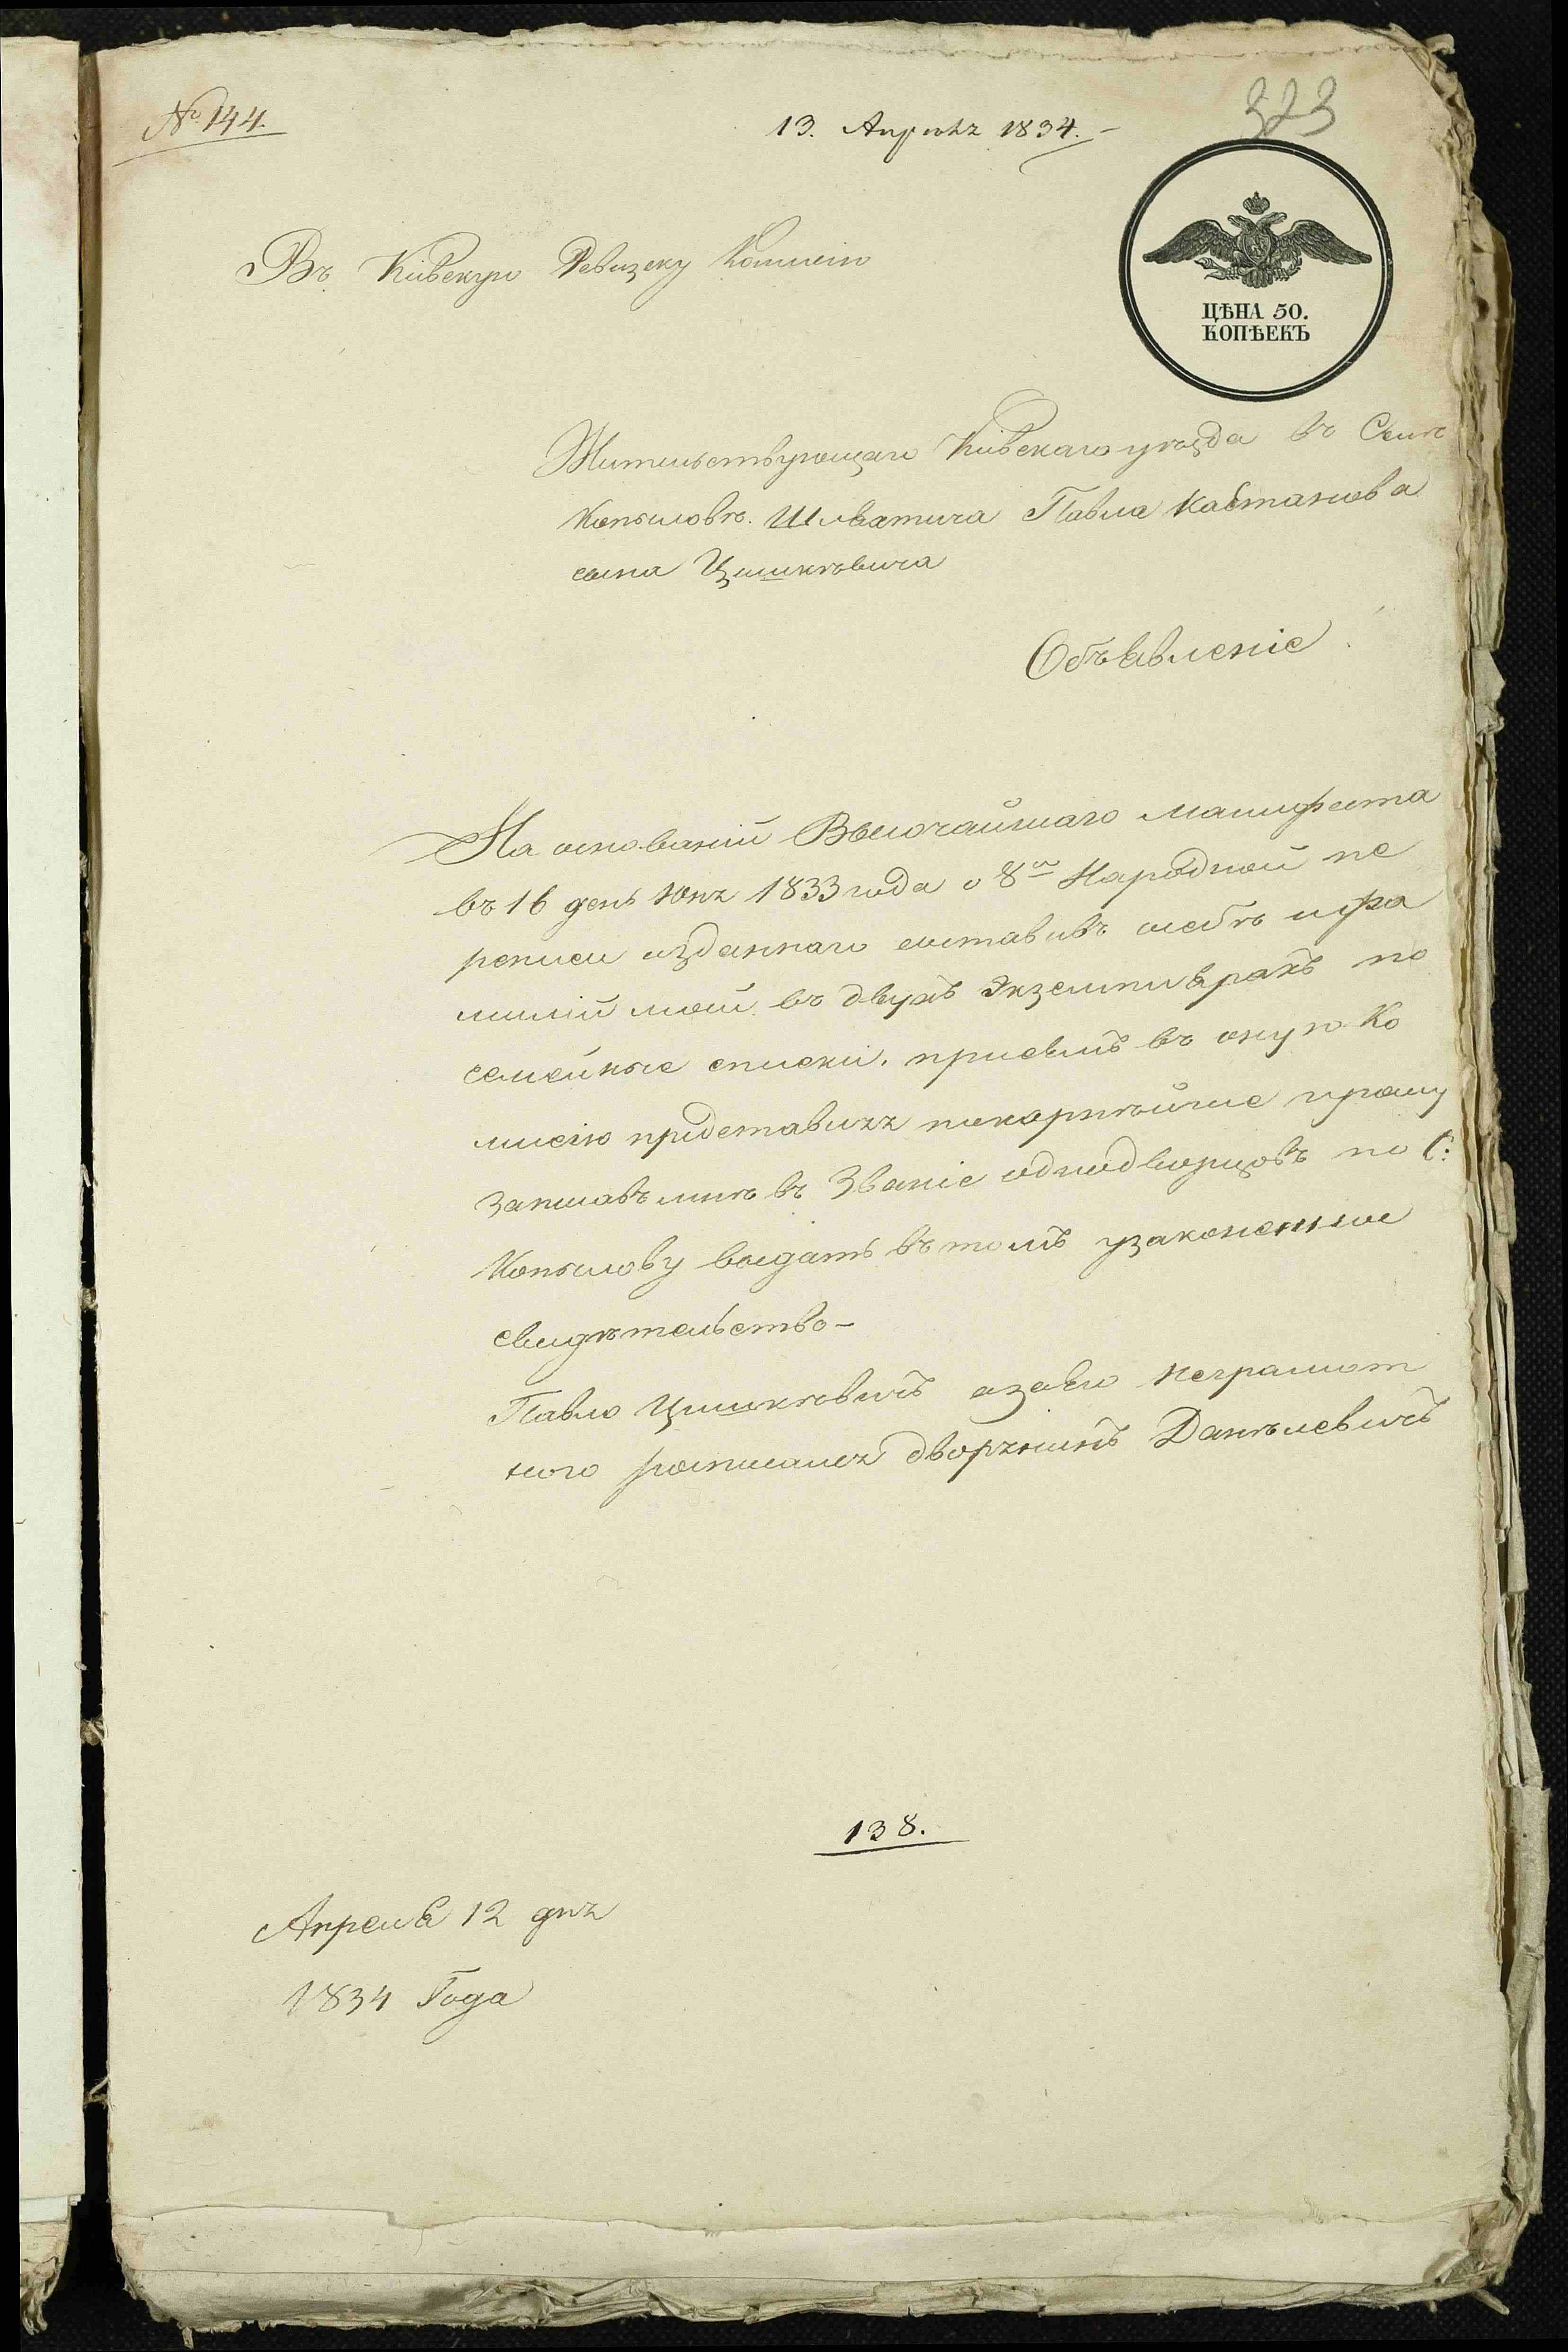 № 144.
13. Апрѣля 1834.
323
Въ Кіивскую Ревизску Комисію
ЦѢНА 50.
КОПѢЕКЪ
Жительствующаго Кіивскаго уѣзда въ Селѣ
Копыловѣ. Шляхтича Павла Каетанова
сына Цишкѣвича
Объявленіе
На основаніи Высочайшаго Манифеста
въ 16 день Юня 1833 года о 8ой Народной пе
реписи изданнаго составивъ осебѣ и фа
миліи моей въ двухъ Экземплярахъ по
семейные списки. присемъ въ оную Ко
мисію придставляя покорнѣйше прошу
записавъ мнѣ въ Званіе однодворцовъ по С:
Копылову выдать въ томъ узаконенное
свидѣтельство-
Павло Цишкѣвичъ азаего неграмот
ного росписался дворянинъ Данѣлевичъ
138.
Апреля 12 дня
1834 Года